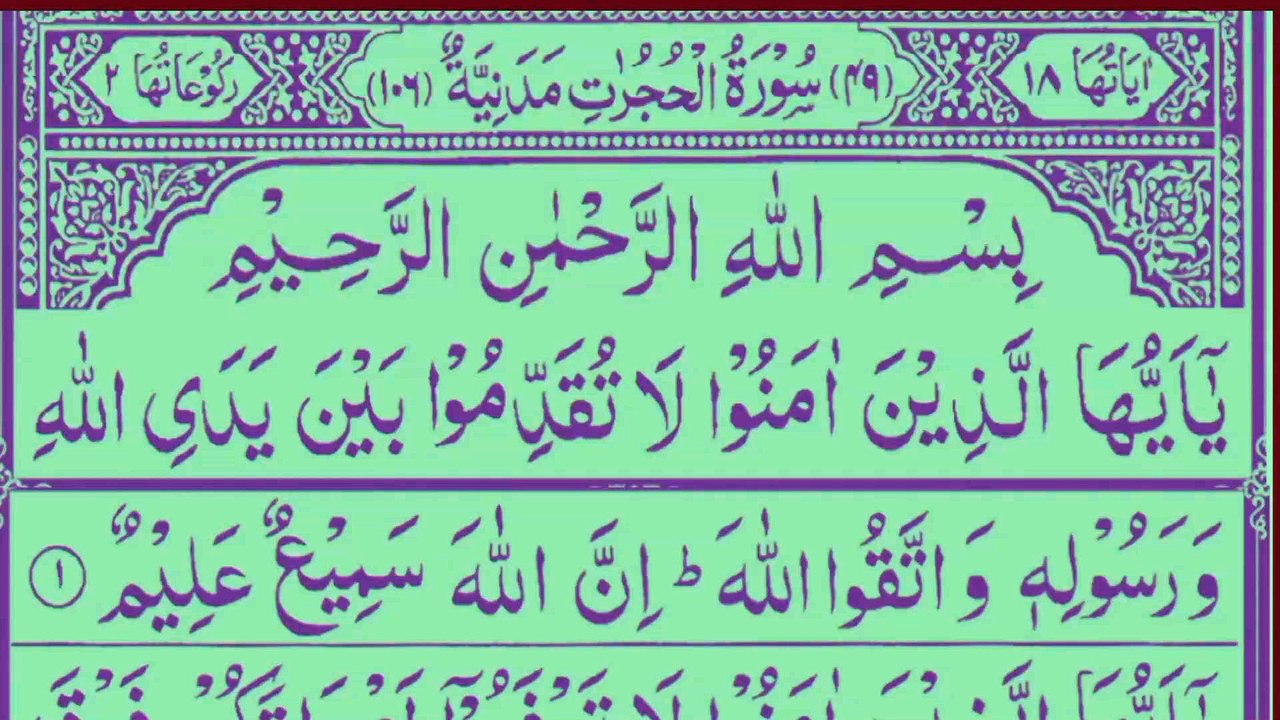 اٰيَاتُهَا ١٨ (٤٩) سُوْرَةُ الْحُجُرٰتِ مَدَنِيَّةٌ (١٠٦) رُكُوْعَاتُهَا ٢
بِسْمِ اللّٰهِ الرَّحْمٰنِ الرَّحِيْمِ
يٰٓاَيُّهَا الَّذِيْنَ اٰمَنُوْا لَا تُقَدِّمُوْا بَيْنَ يَدَيِ اللّٰهِ
وَ رَسُوْلِهٖ وَ اتَّقُوا اللّٰهَ ؕ اِنَّ اللّٰهَ سَمِيْعٌ عَلِيْمٌ ١